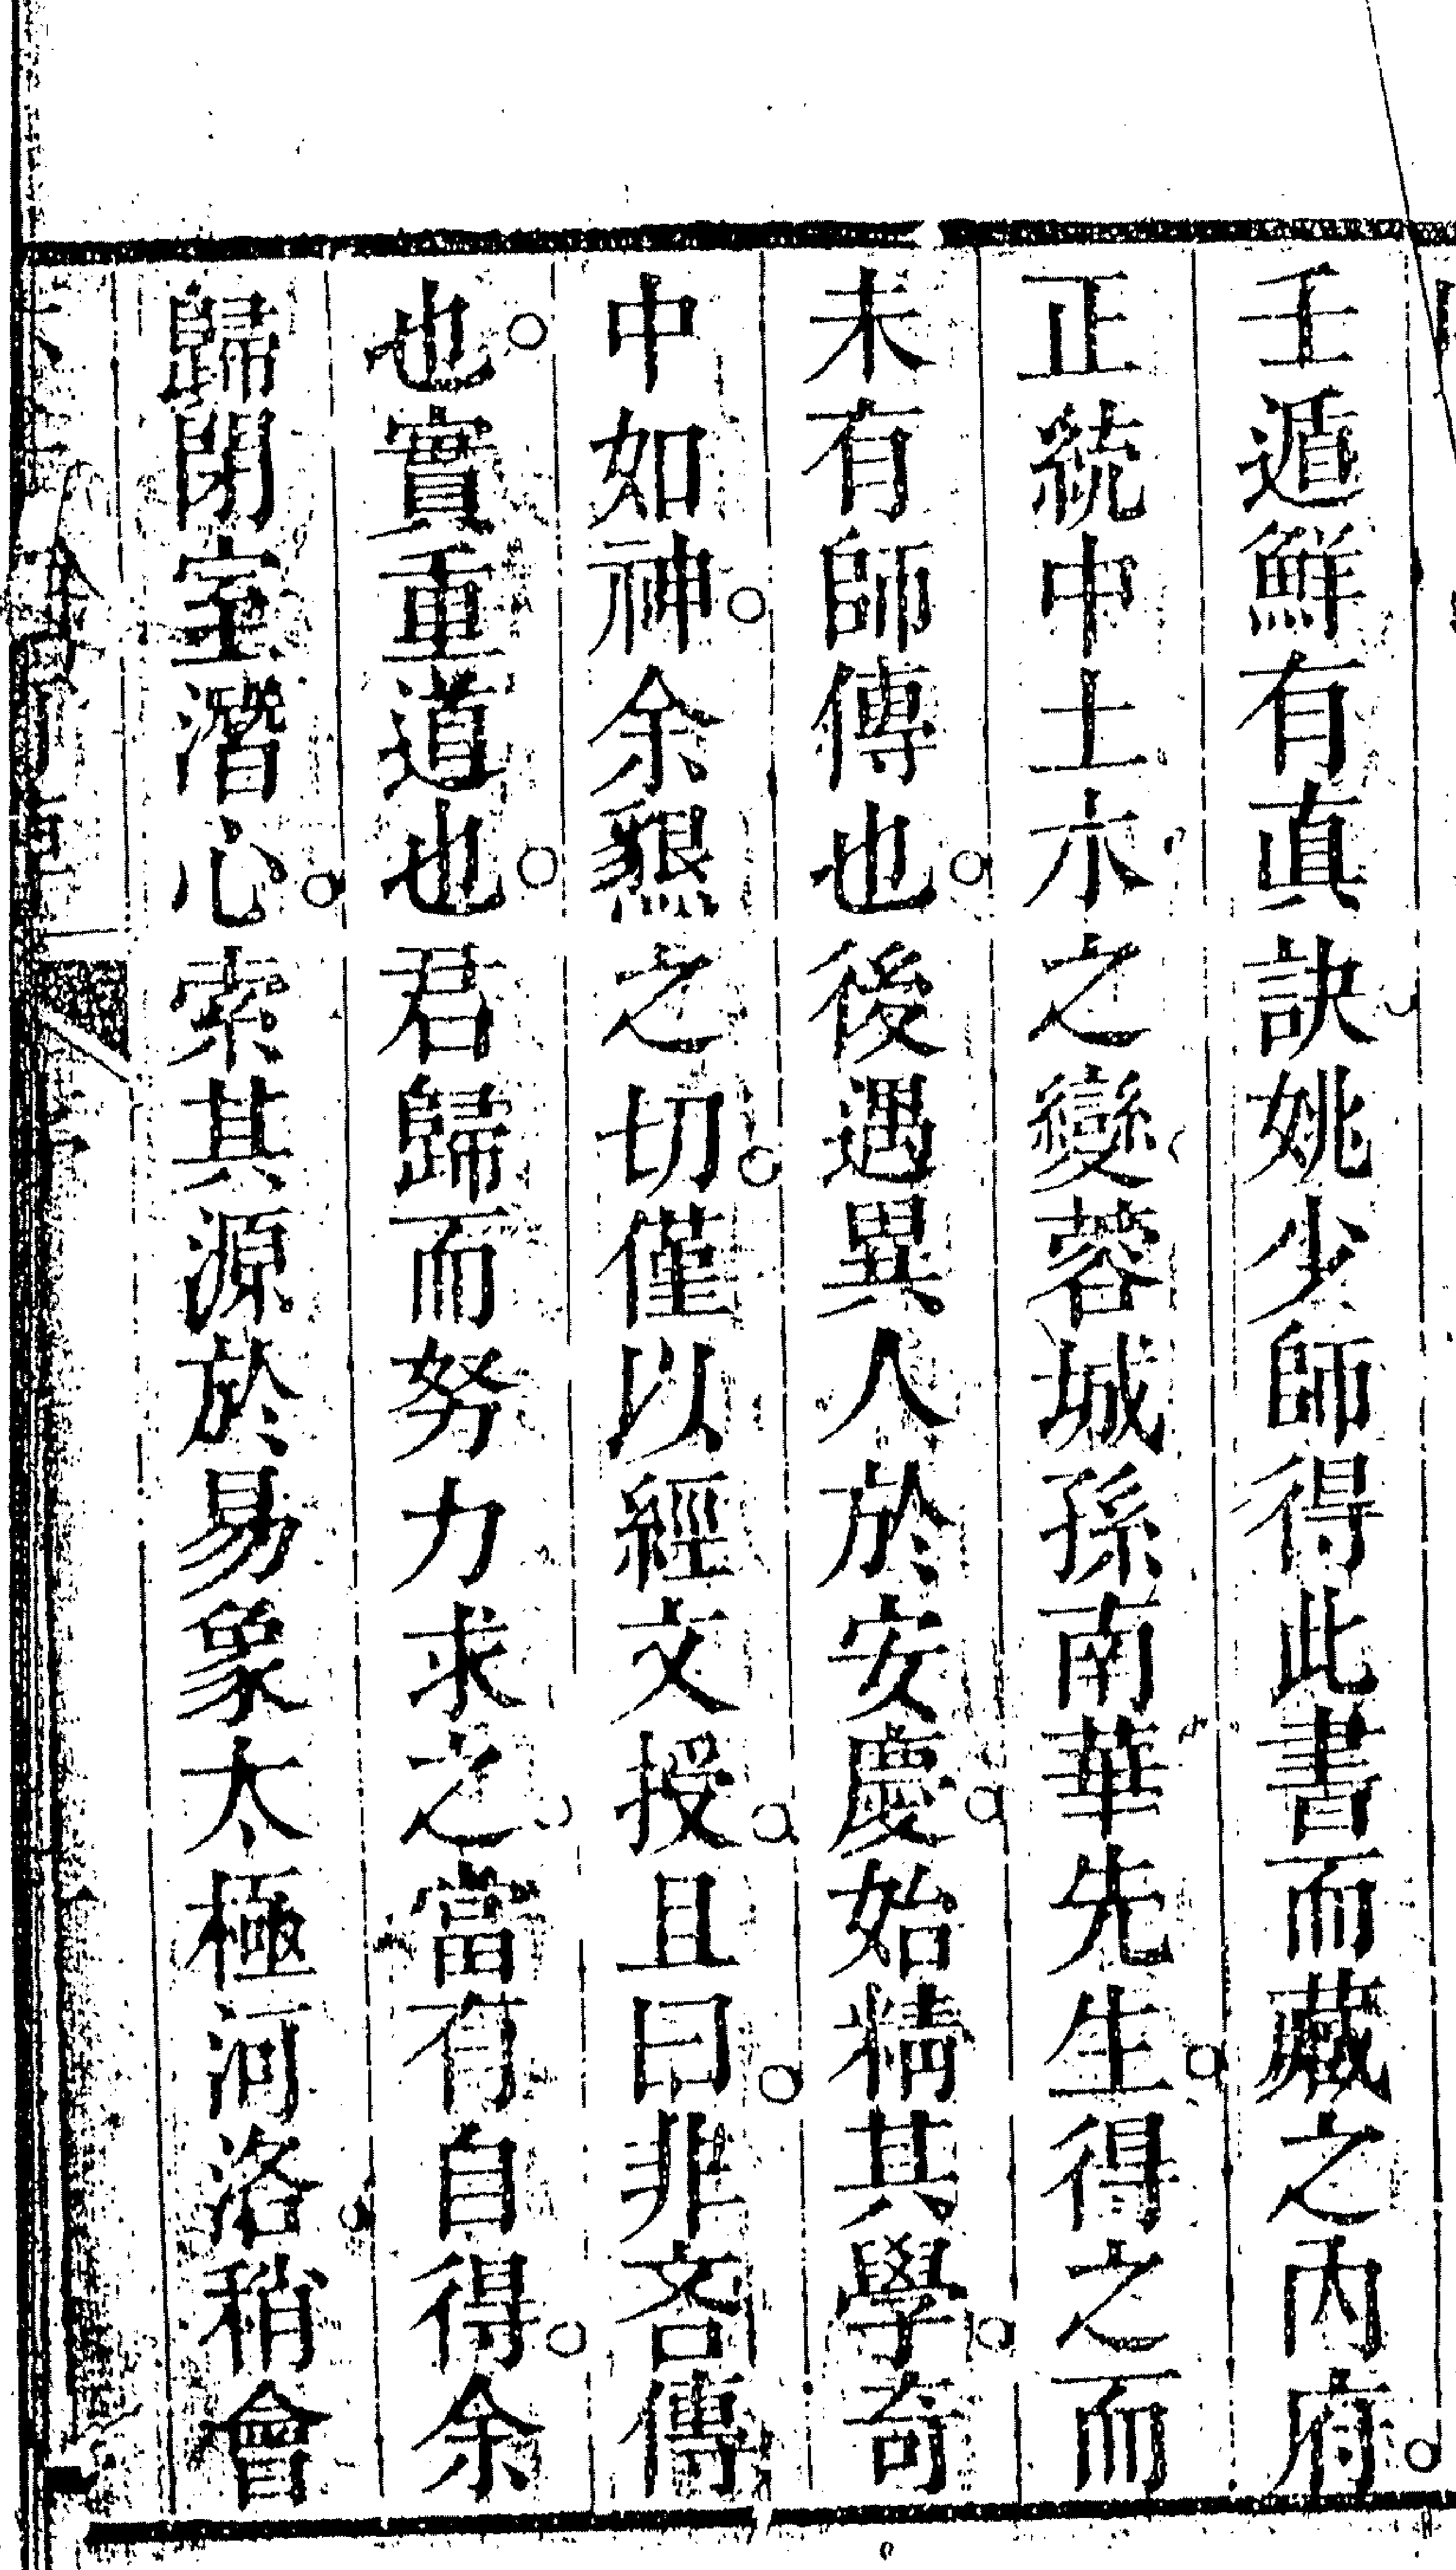 壬遁鮮有真訣姚少師得此書而藏之内府
正統中土木之變蓉城孫南華先生得之而
未有師傳也後遇異人於安慶始精其學奇
中如神余懇之切僅以經文授且曰非吝傳
也實重道也君歸而努力求之當有自得余
歸閉室潛心索其源於易象太極河洛稍會